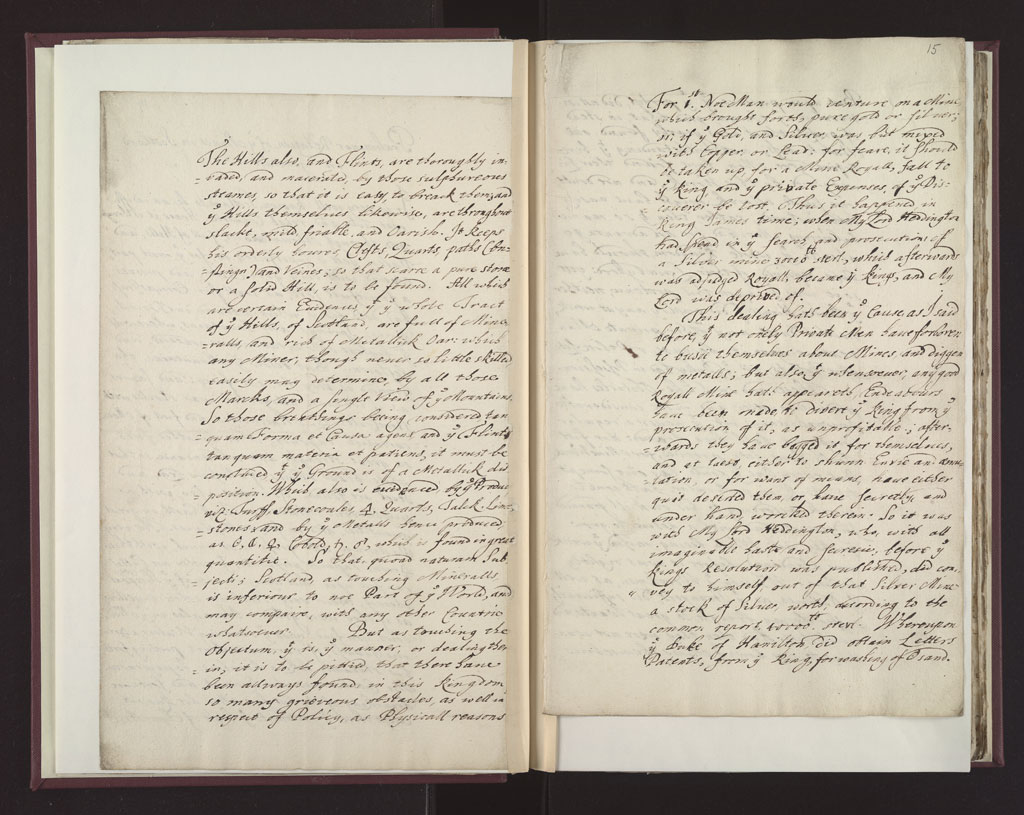 The Hills also, and Flints, are thoroughly in-
=vaded, and macerated, by those sulphureous
steames, so that it is easy to break them; and
yᵉ Hills themselves likewise, are throughout
slackt, mild, friable, and Carish. It keeps
his orderly houres, Clefts, Quarts, paths
and Veines; so that scarce a pure stone
or a solid Hill, is to be found. All which
are certain Evidences, yᵗ yᵉ whole Tract
of yᵉ Hills, of Scotland, are full of Mine-
ralls, and rich of Metallick Oar: which
any Miner, though never so little skilled
easily may determine, by all those
Marcks, and a single View of yᵉ Mountains.
So those breathings being considered tan
quam Forma et Causa agens and yᵉ Flints
tanquam materia et patiens, it must be
confessed yᵗ yᵉ Ground is of a Metallick dis
position. Which also is evidenced by yᵉ Produc
viz. Stonecoales, Quarts, Talck, Lime
=stones and by yᵉ Metalls hence produced,
as Cobold, which is found in great
quantitie. So that, quoad naturam Sub
jecti; Scotland, as touching Mineralls
is inferious to noe Part of yᵉ World, and
may compaire, with any other Countrie
whatsoever. But as touching the
Objectum, yᵗ is, yᵉ manner, or dealing ther
in, it is to be pittied, that there have
been allways found, in this Kingdom
so many grievous obstacles, as well in
respect of Policy, as Physicall reasons
15
For 1ˢᵗ. Noe Man would venture on a Mine,
which brought forth, pure gold or silver;
or, if yᵉ Gold, and Silver, was but mixed
with Copper, or Lead: for feare, it should
be taken up for a Mine Royall, fall to
yᵉ King and yᵉ private Expenses, of yᵉ Dis-
=coverer be lost. Thus it happened in
King James time; when My Lord Heddington
had spend in yᵉ search and prosecution of
a Silver mine 3000 sterl, which afterwards
was adjudged Royall, became yᵉ Kings, and My
Lord was deprived of.
This dealing hath been yᵉ Cause, as I said
before, yᵗ not onely Private Men have forboren
to busie themselves about Mines and diggen
of metalls; but also, yᵗ whensoever, any good
Royall Mine hath appeareth, Endeavours
have been made to divert yᵉ King from yᵉ
prosecution of it, as unprofitable; after-
=wards they have begged it for themselves,
and at laest, either to shunn Envie and emu
lation, or for want of means, have either
quit desired them, or have secretly, and
under hand worcked therein. So it was
with My Lord Heddington, who, with all
imaginable haste and secresie, before yᵉ
Kings Resolution was published, did con-
vey to himself, out of that Silver Mine
a stock of Silver, worth, according to the
common report, 40000ᵗʰ sterl. Whereupon
yᵉ Duke of Hamilton did obtain Letters
Patents, from yᵉ King, for washing of Sand.